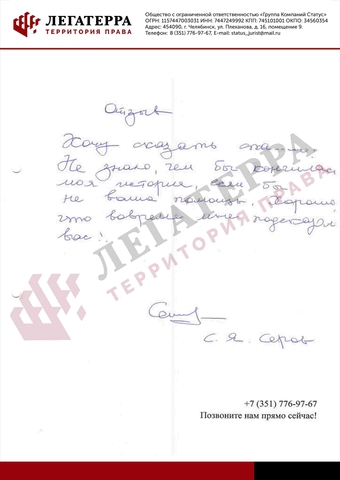 ЛЕГАТЕРРА
ТЕРРИТОРИЯ ПРАВА
Общество с ограниченной ответственностью «Группа Компаний Статус»
ОГРН: 1157447003031 ИНН: 7447249992 КПП: 745101001 ОКПО: 34560354
Адрес: 454090, г. Челябинск, ул. Плеханова, д. 16, помещение 9.
Телефон: 8 (351) 776-97-67, E-mail: status_jurist@mail.ru
Отзыв
Хочу сказать
Не знаю, чем бы кончилась
моя история, если бы
не ваша помощь. Хорошо
что вовремя мне подсказали
вас!
ЛЕГАТЕРРА
ТЕРРИТОРИЯ ПРАВА
С. Я. Серов
+7 (351) 776-97-67
Позвоните нам прямо сейчас!